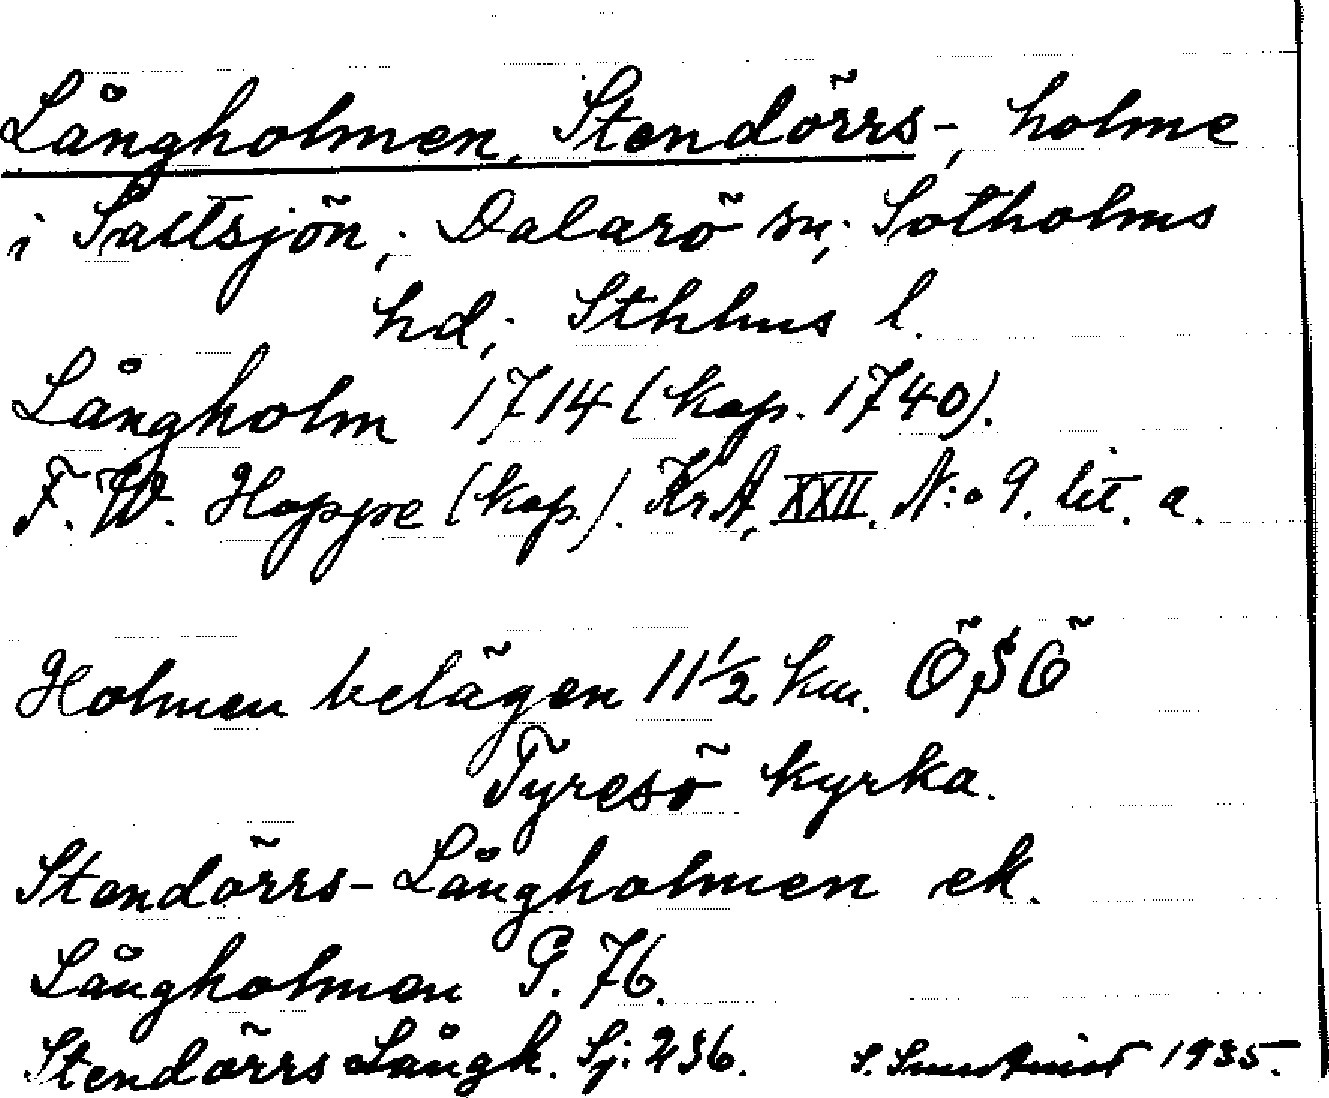 Långholmen, Stendörrs-, holme
i Saltsjön; Dalarö sn; Sotholms
hd; Sthlms l.
Långholm 1714 (kop. 1740).
F. W. Hoppe (kop.). KrA, XXII. N:o 9. lit. a.
Holmen belägen 11½ km. ÖSÖ
Tyresö kyrka.
Stendörrs-Långholmen ek.
Långholmen G. 76.
Stendörrs Långh. Sj: 236. S. 1935.